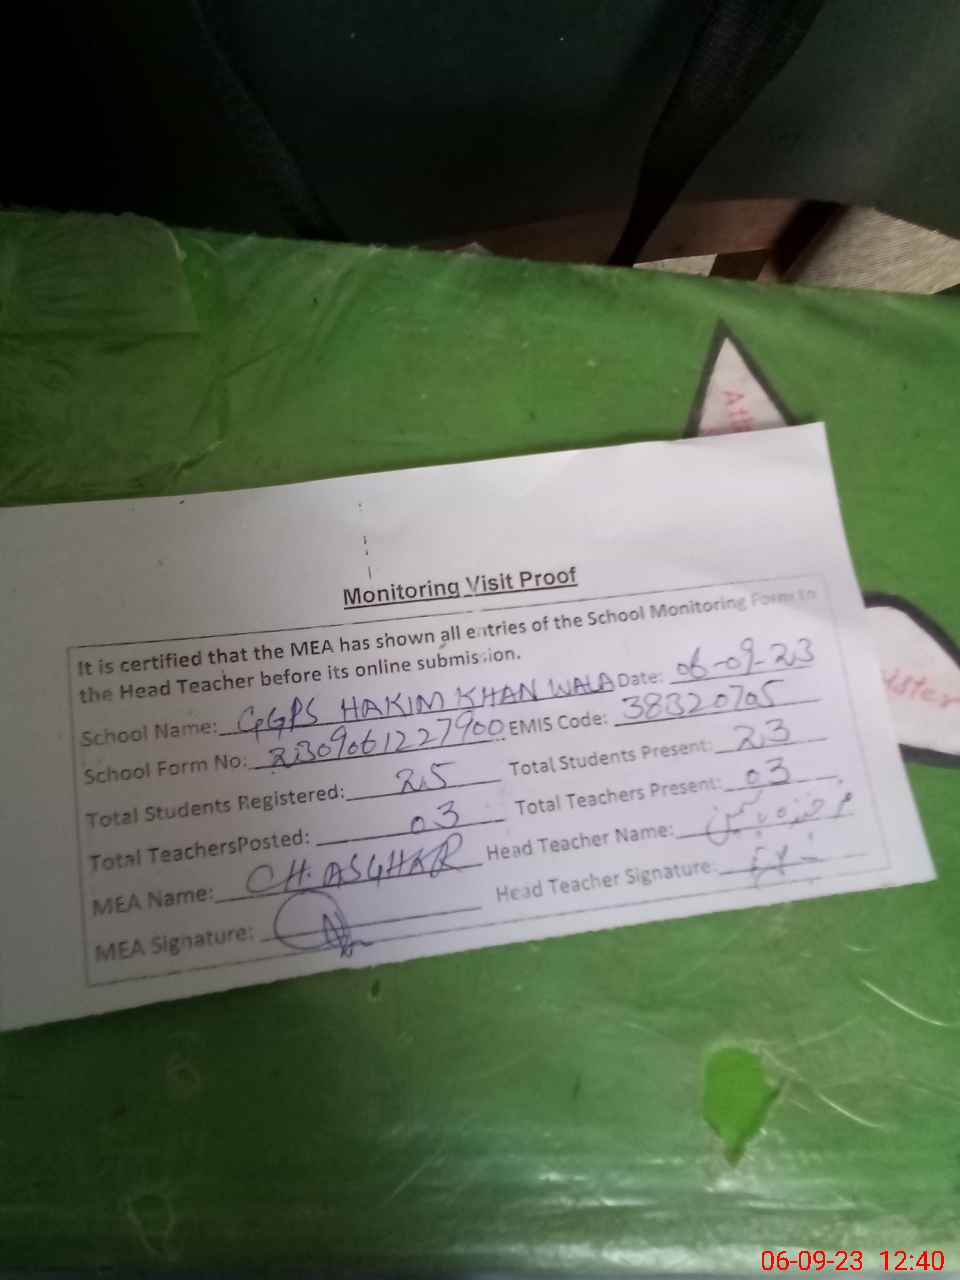 Att
Monitoring Visit Proof
It is certified that the MEA has shown all entries of the School Monitoring Form to
the Head Teacher before its online submission.
School Name: GGPS HAKIM KHAN WALA Date: 06-09-23
School Form No: 2309061227900 EMIS Code: 38320705
Total Students Registered: 25 Total Students Present: 23
Total TeachersPosted: 03 Total Teachers Present: 03
MEA Name: CH. ASGHAR Head Teacher Name:
MEA Signature: Head Teacher Signature:
ister
06-09-23 12:40